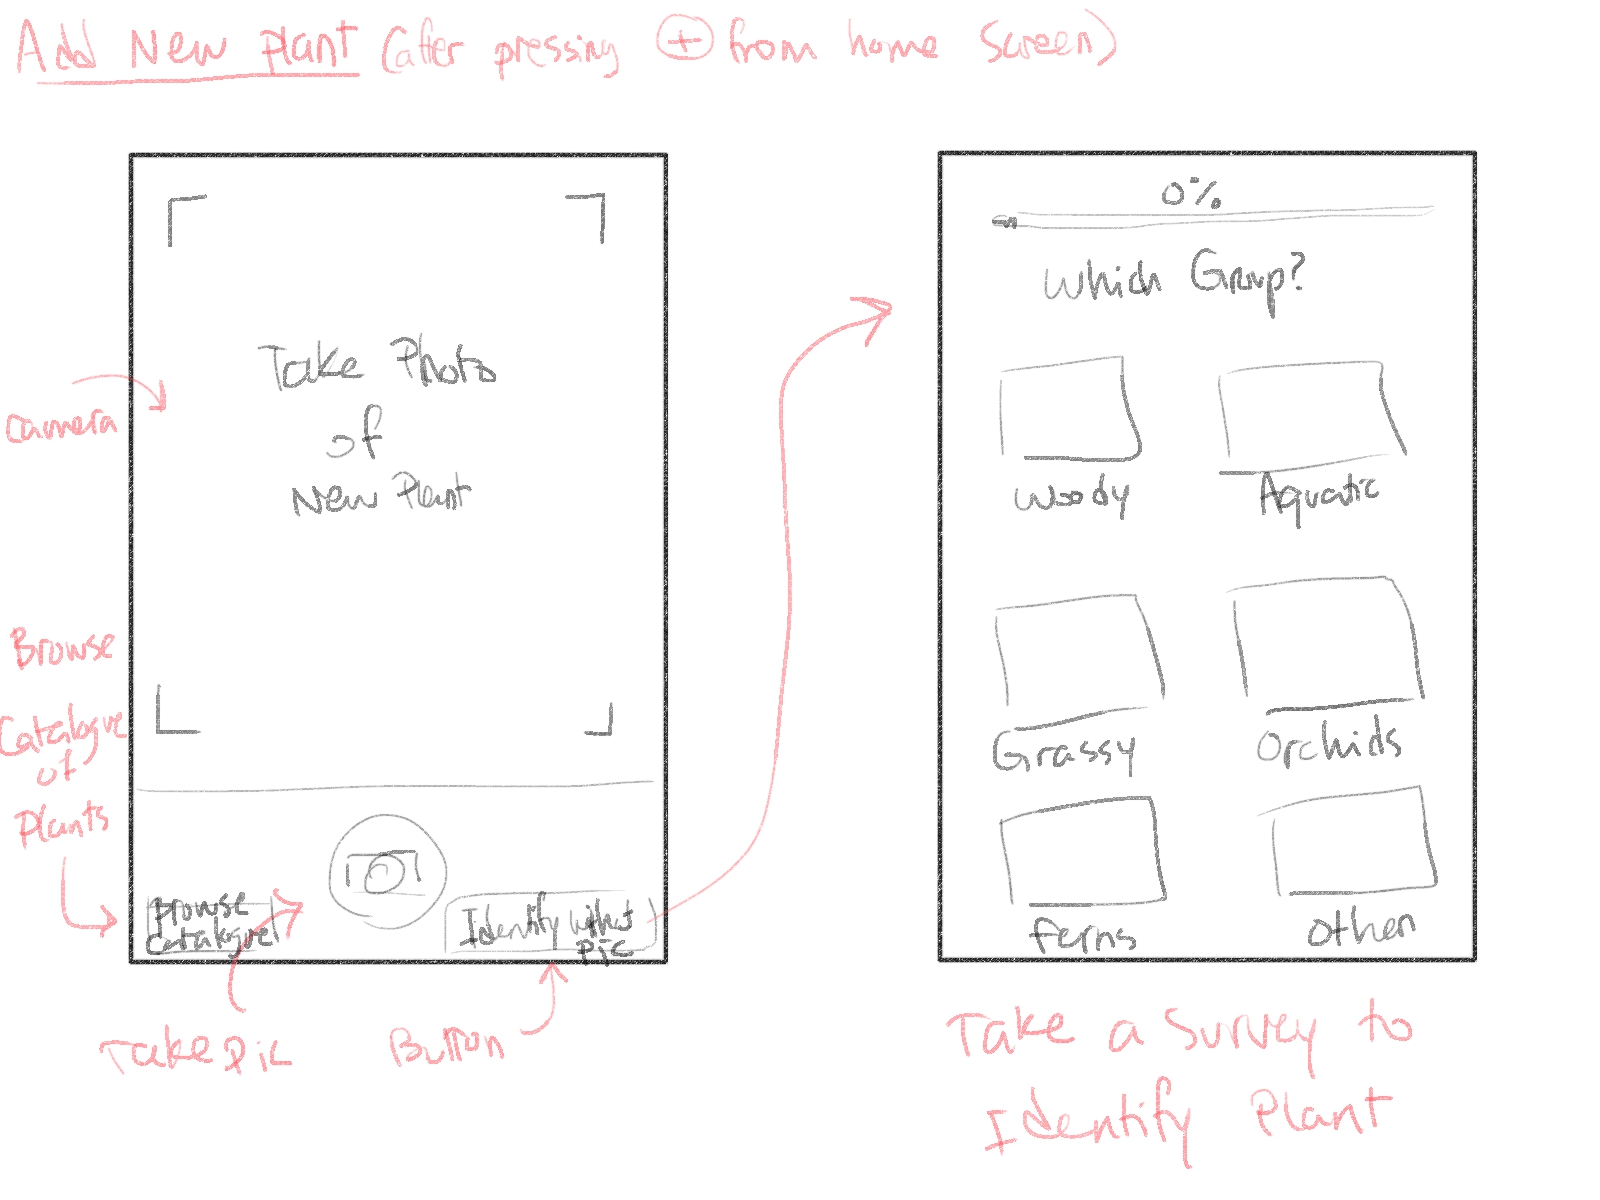 Add New plant (after pressing + from home screen)
Take Photo
of
New Plant
camera
Browse
Catalogue
of
Plants
Browse
Catalogue
Identify without
Pic
Take pic
Button
0%
Which Group?
Woody
Aquatic
Grassy
Orchids
Ferns
Other
Take a Survey to
Identify Plant